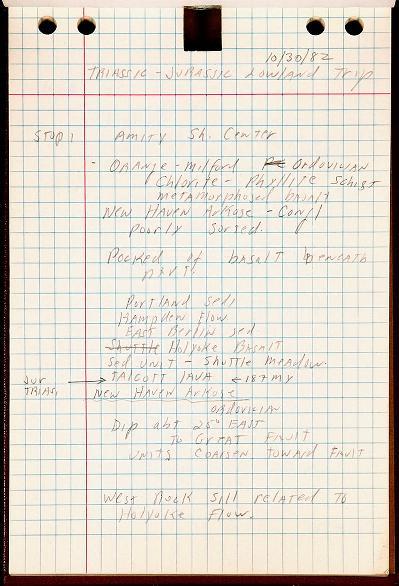 10/30/82
TRIASSIC - JURASSIC Lowland Trip
STOP 1 AMITY Sh. Center
- ORANGE - Milford ORDOVICIAN
Chlorite - Phyllite Schist
metamorphosed basalt
NEW HAVEN ArKose - Congl
poorly sorted.
Pocked of basalt beneath
Portland Sed
Hampden Flow
EAST Berlin sed
Shuttle Holyoke BASALT
Sed UNIT - Shuttle Meadow.
JUR → TALCOTT LAVA ← 187 my
TRIAS. NEW HAVEN Arkose
ORDOVICIAN
Dip abt 25° EAST
To GREAT FAULT
UNITS COARSEN TOWARD FAULT
West Rock Sill related TO
Holyoke Flow.